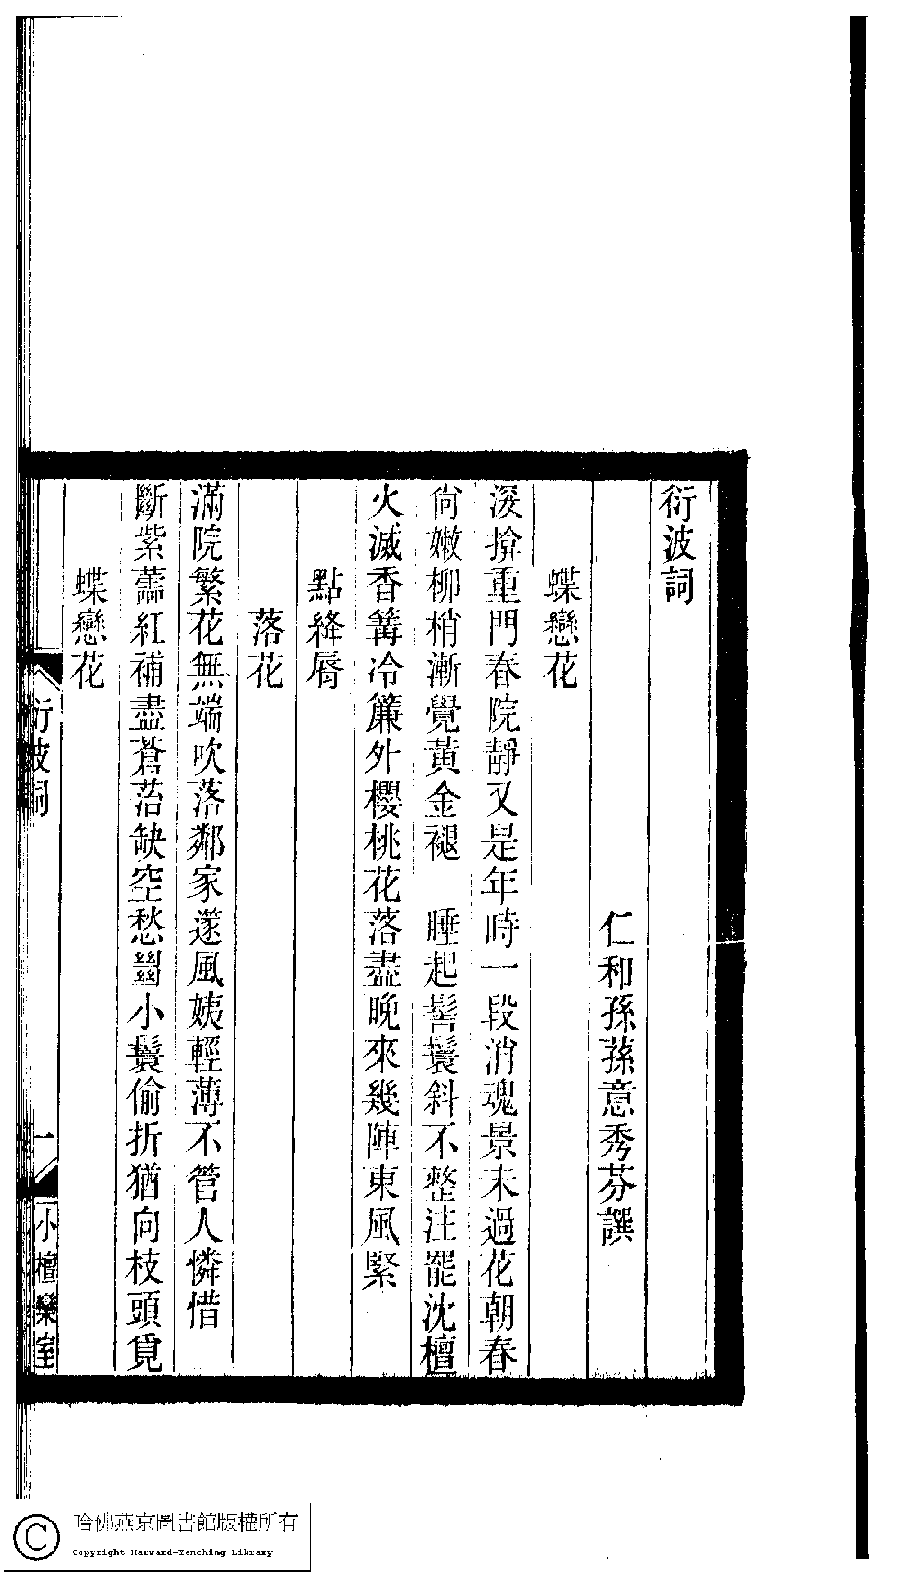 衍波詞
仁和孫蓀意秀芬譔
蝶戀花
深揜重門春院靜又是年時一段消魂景未過花朝春
尙嫩柳梢漸覺黃金褪　睡起髻鬟斜不整注罷沈檀
火滅香篝冷簾外櫻桃花落盡晚來幾陣東風緊
點絳脣
落花
滿院繁花無端吹落鄰家篴風姨輕薄不管人憐惜
斷紫蔫紅補盡蒼苔缺空愁𢇍小鬟偷折猶向枝頭覓
蝶戀花
衍波詞
一
小檀欒室
哈佛燕京圖書館版權所有
Copyright Harvard-Yenching Library